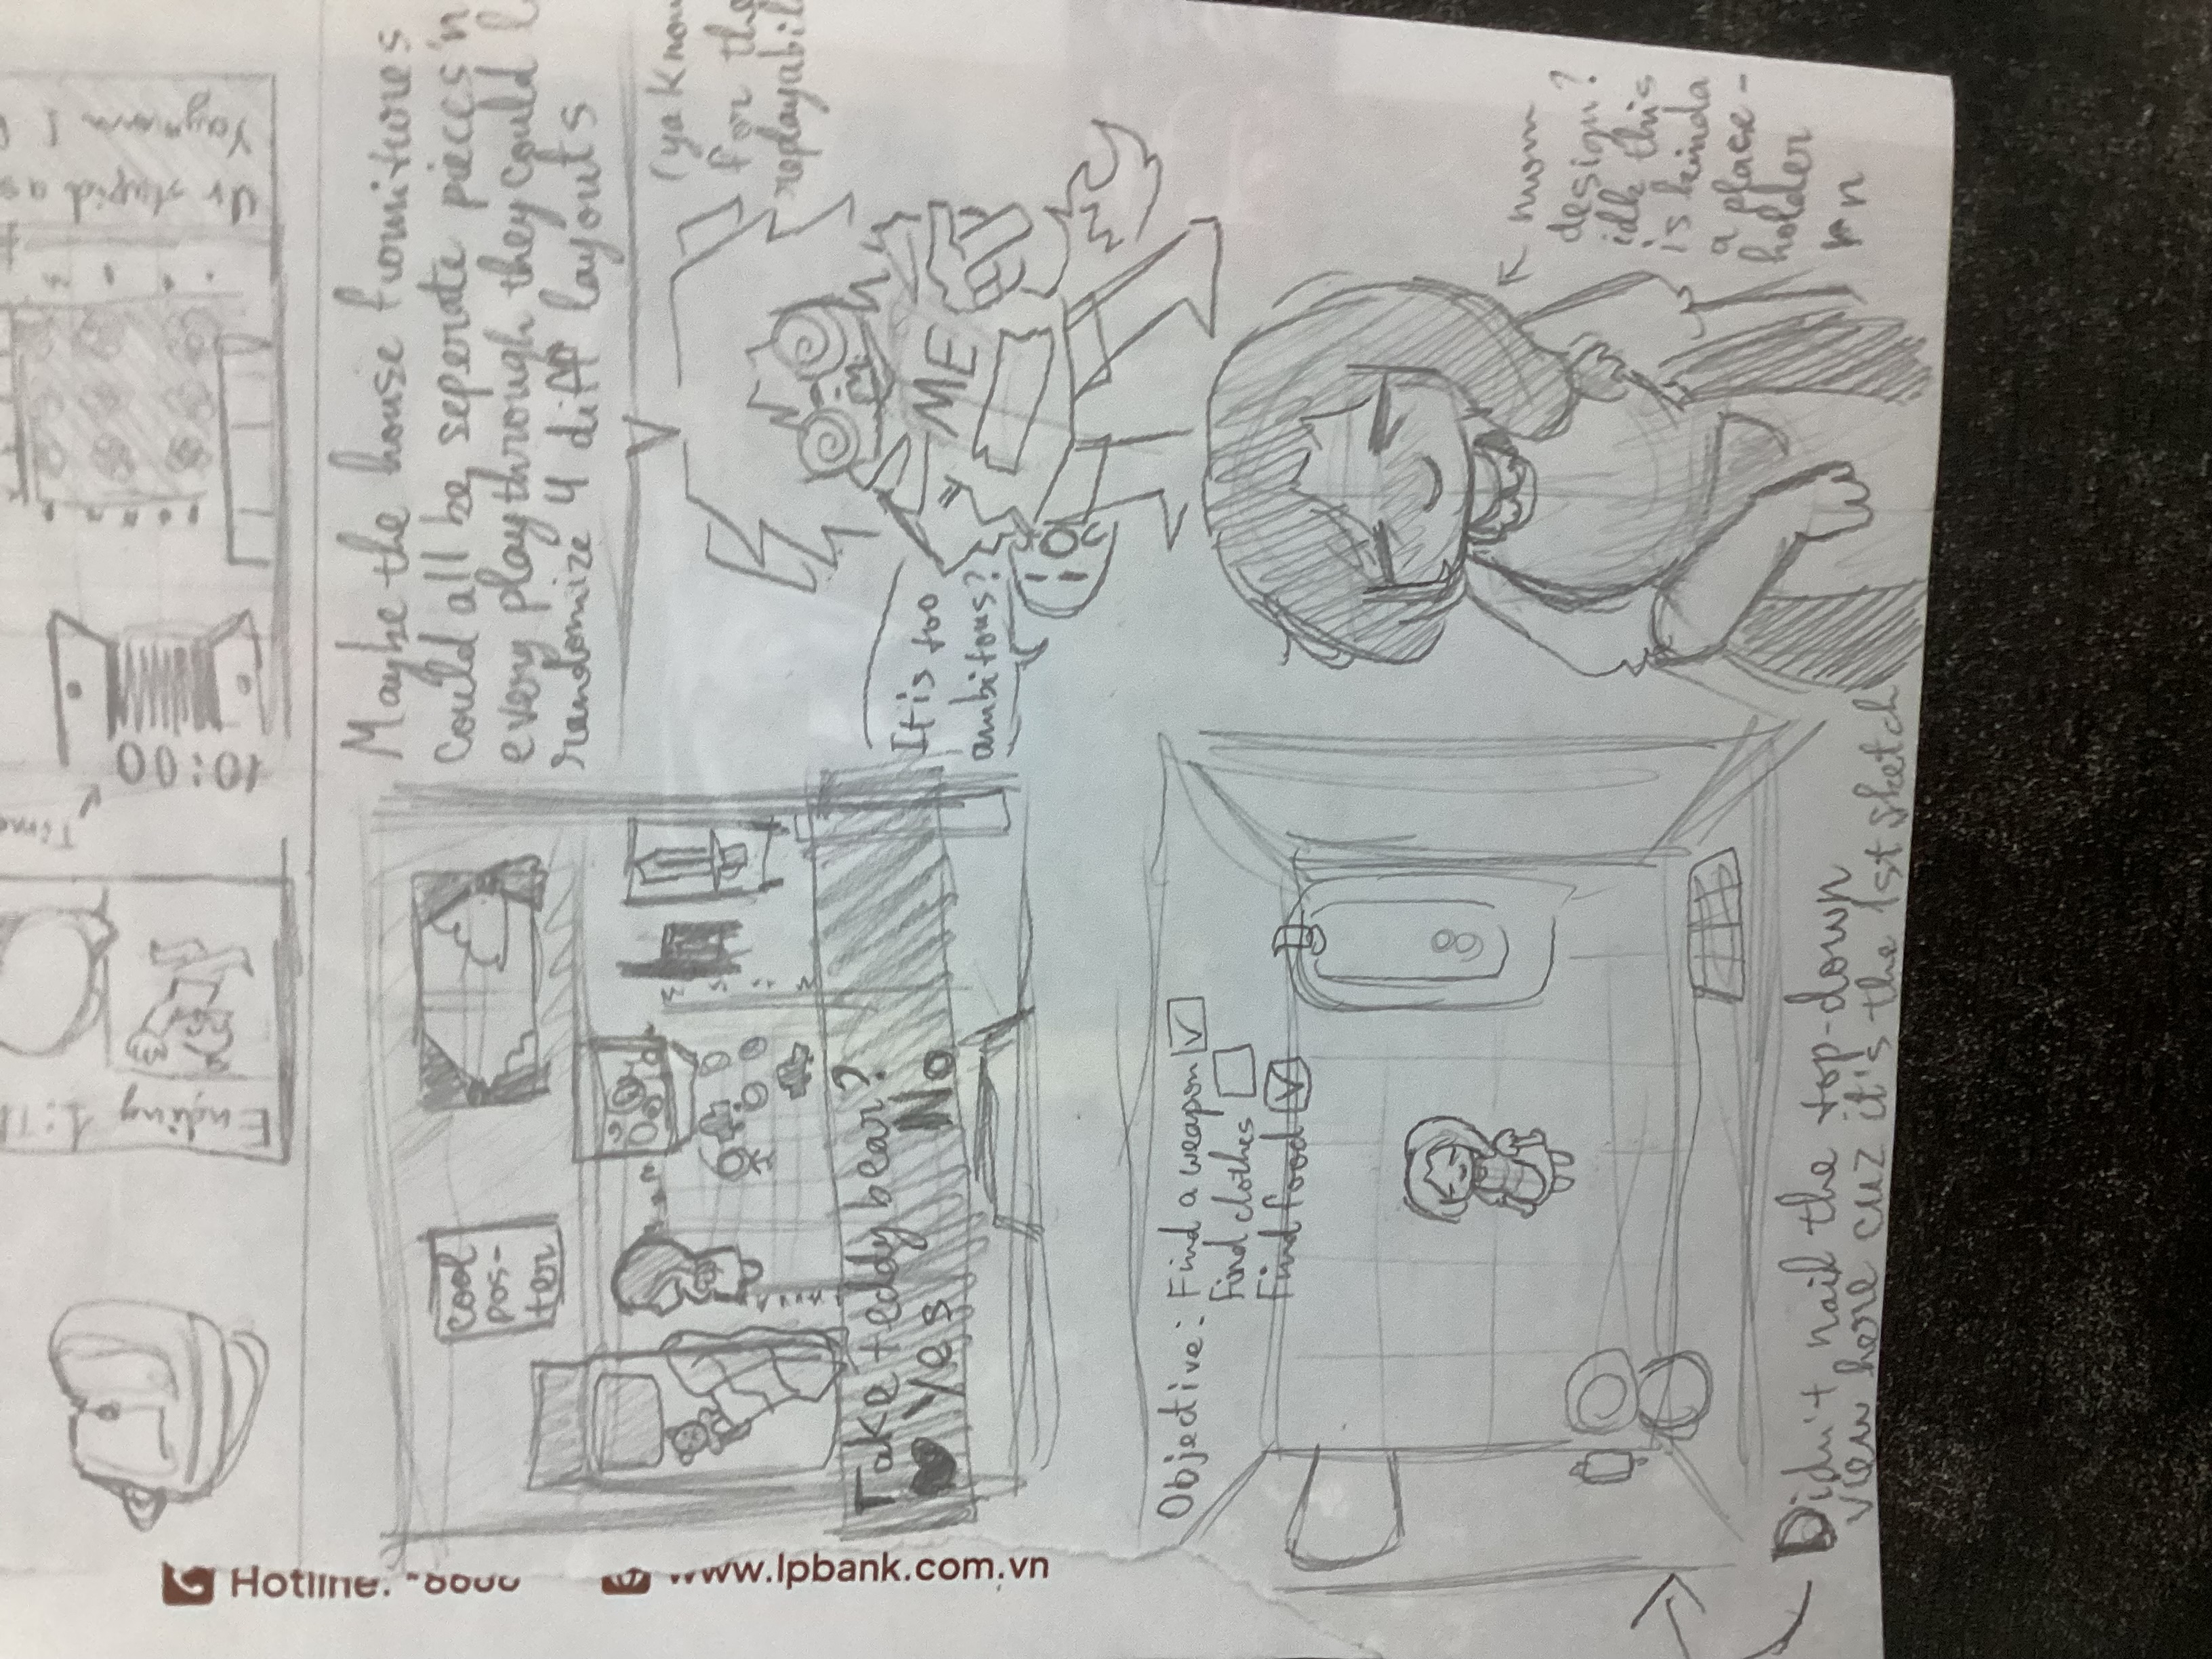 Maybe the house furnitures
could all be seperate pieces 'n
every playthrough they could
randomize 4 diff layouts
(ya know
for the
It is too
ambitous?
ME
cool
pos-
ter
Take teddy bear?
Yes No
Objective: Find a weapon
Find clothes
Find food
← mom
design?
idk this
is kinda
a place-
holder
rn
Didn't nail the top-down
view here cuz it's the 1st sketch
10:00
Ending 1:
Hotline:
www.lpbank.com.vn